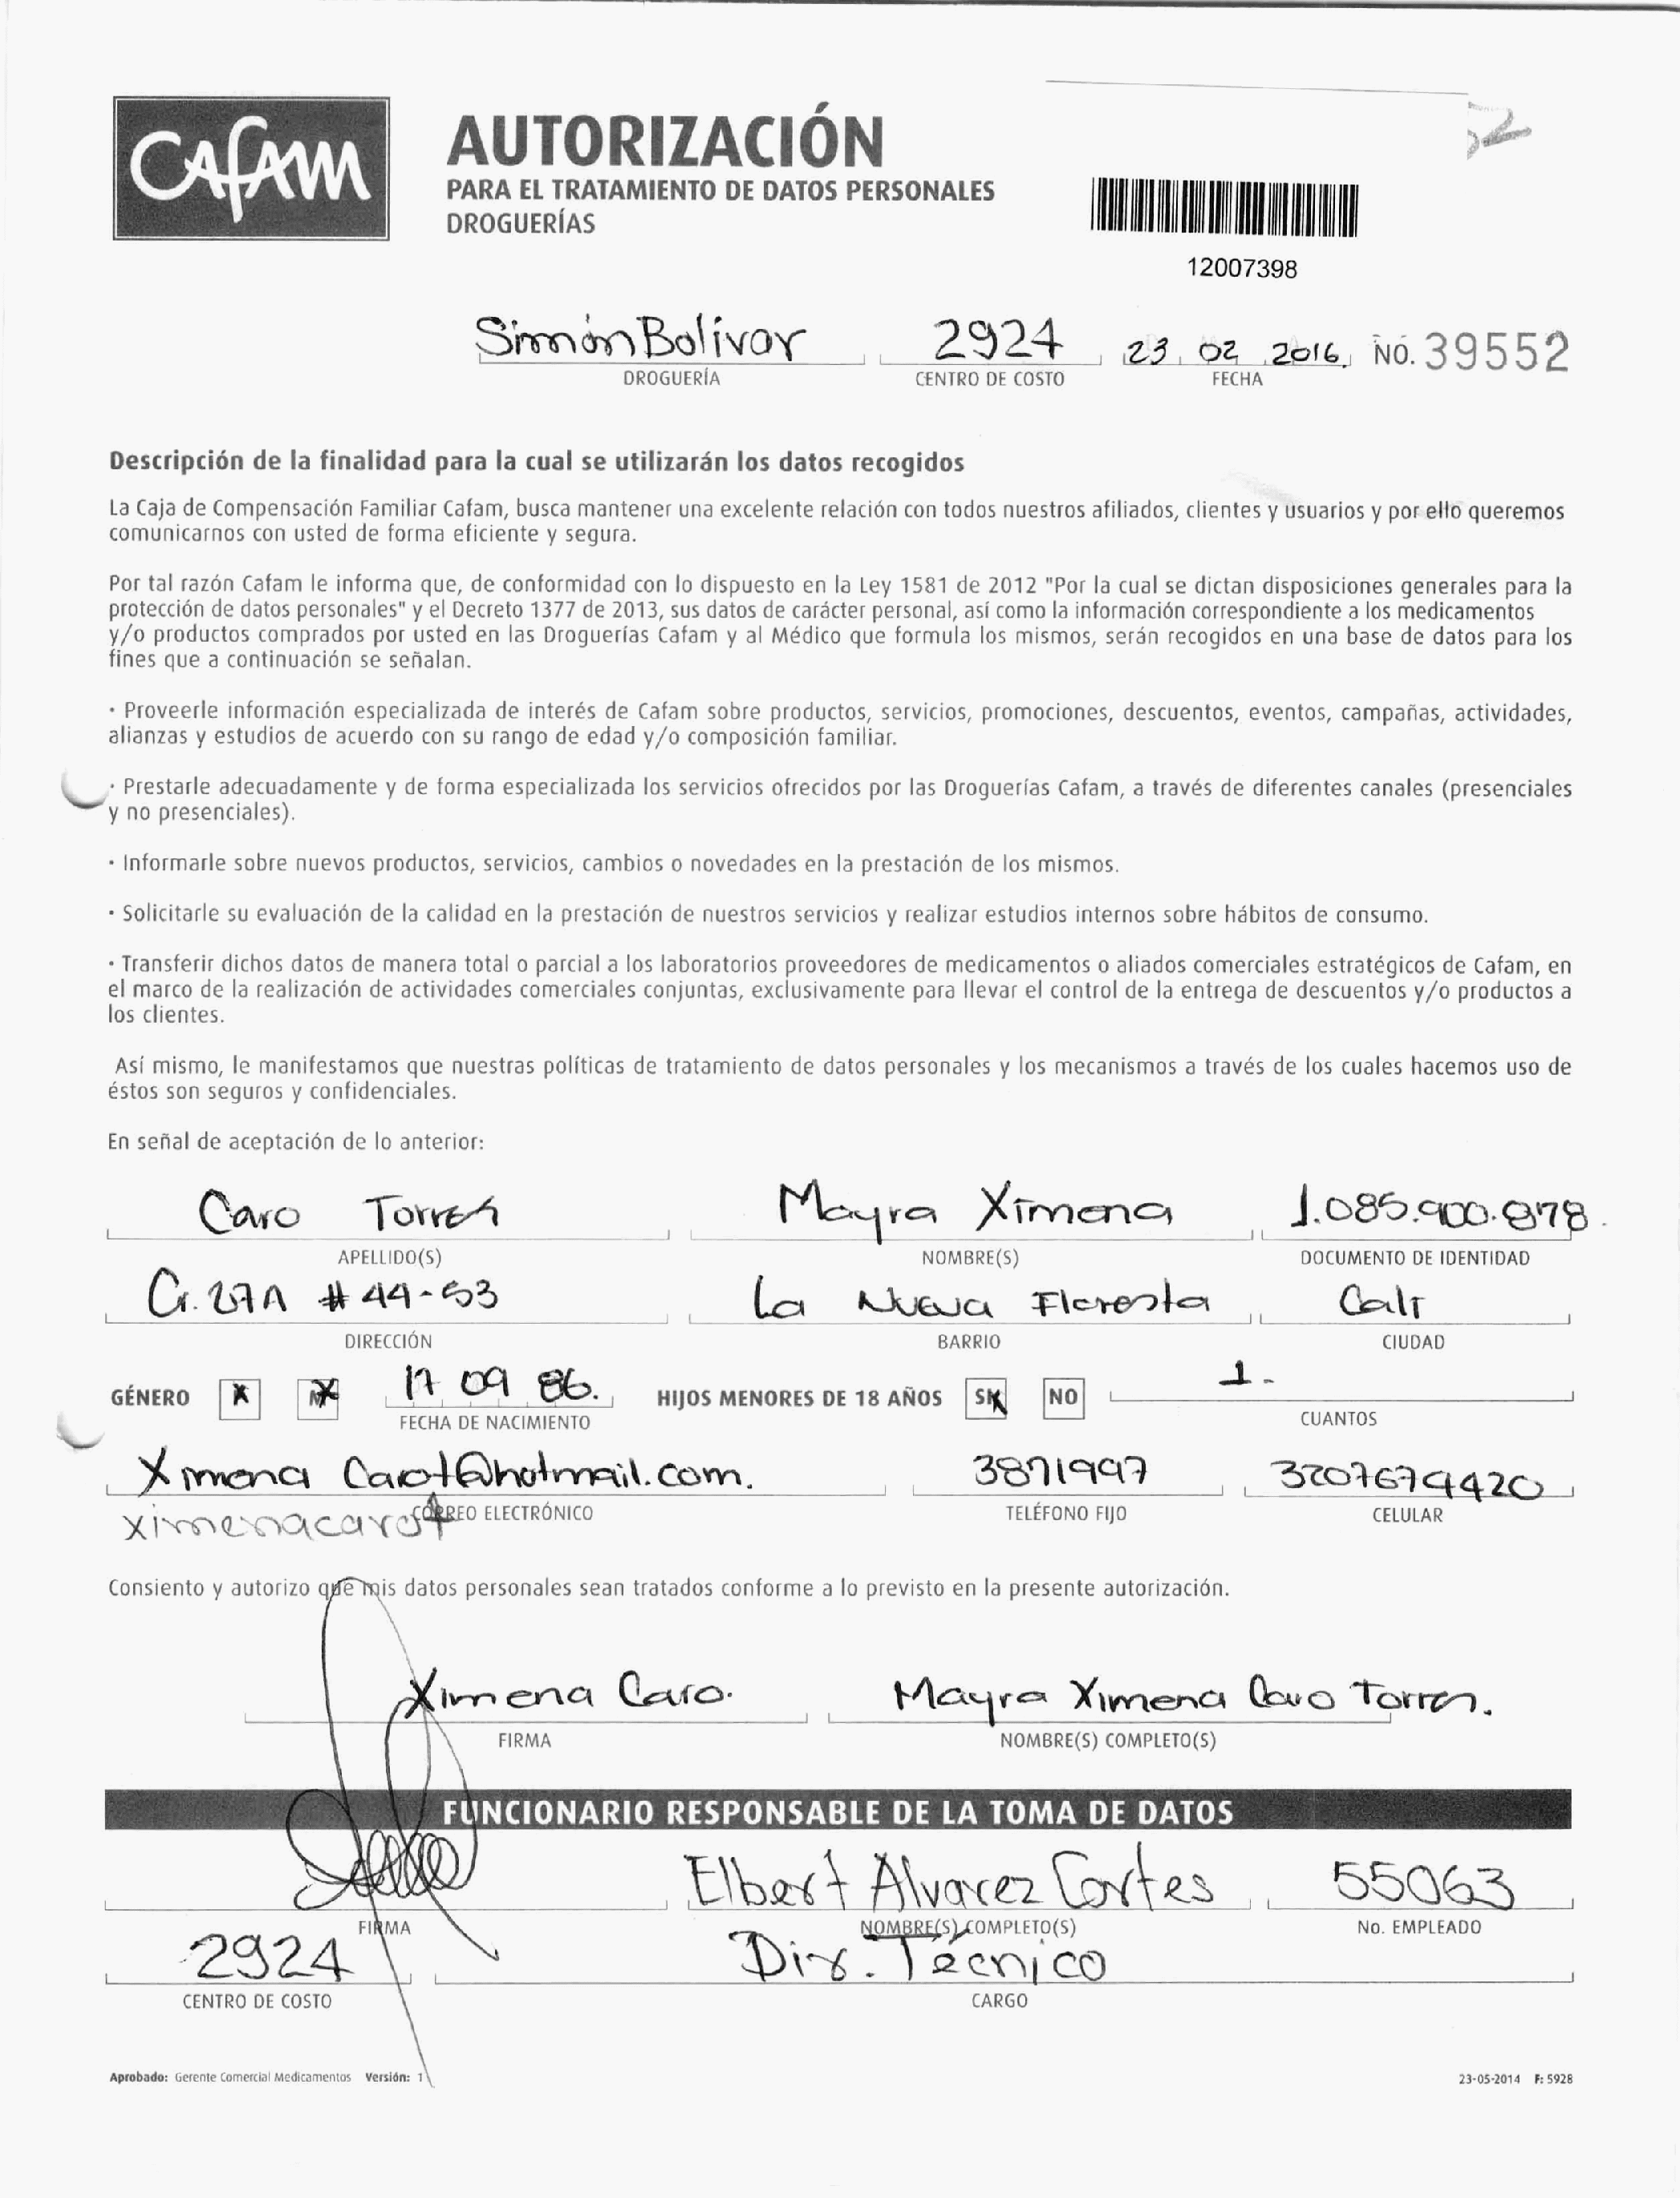 CAFAM
AUTORIZACIÓN
PARA EL TRATAMIENTO DE DATOS PERSONALES
DROGUERÍAS
12007398
Simón Bolívar 2924 23 02 2016 NO. 39552
DROGUERÍA CENTRO DE COSTO FECHA
Descripción de la finalidad para la cual se utilizarán los datos recogidos
La Caja de Compensación Familiar Cafam, busca mantener una excelente relación con todos nuestros afiliados, clientes y usuarios y por ello queremos
comunicarnos con usted de forma eficiente y segura.
Por tal razón Cafam le informa que, de conformidad con lo dispuesto en la Ley 1581 de 2012 "Por la cual se dictan disposiciones generales para la
protección de datos personales" y el Decreto 1377 de 2013, sus datos de carácter personal, así como la información correspondiente a los medicamentos
y/o productos comprados por usted en las Droguerías Cafam y al Médico que formula los mismos, serán recogidos en una base de datos para los
fines que a continuación se señalan.
· Proveerle información especializada de interés de Cafam sobre productos, servicios, promociones, descuentos, eventos, campañas, actividades,
alianzas y estudios de acuerdo con su rango de edad y/o composición familiar.
· Prestarle adecuadamente y de forma especializada los servicios ofrecidos por las Droguerías Cafam, a través de diferentes canales (presenciales
y no presenciales).
· Informarle sobre nuevos productos, servicios, cambios o novedades en la prestación de los mismos.
· Solicitarle su evaluación de la calidad en la prestación de nuestros servicios y realizar estudios internos sobre hábitos de consumo.
· Transferir dichos datos de manera total o parcial a los laboratorios proveedores de medicamentos o aliados comerciales estratégicos de Cafam, en
el marco de la realización de actividades comerciales conjuntas, exclusivamente para llevar el control de la entrega de descuentos y/o productos a
los clientes.
Así mismo, le manifestamos que nuestras políticas de tratamiento de datos personales y los mecanismos a través de los cuales hacemos uso de
éstos son seguros y confidenciales.
En señal de aceptación de lo anterior:
Caro Torres Mayra Ximena 1.085.900.878.
APELLIDO(S) NOMBRE(S) DOCUMENTO DE IDENTIDAD
Cr. 27A # 44-53 La Nueva Floresta Cali
DIRECCIÓN BARRIO CIUDAD
GÉNERO X M X 17 09 86. HIJOS MENORES DE 18 AÑOS SI X NO 1.
FECHA DE NACIMIENTO CUANTOS
Ximena Carot@hotmail.com. 3871997 3207679420
CORREO ELECTRÓNICO TELÉFONO FIJO CELULAR
ximenacarot
Consiento y autorizo que mis datos personales sean tratados conforme a lo previsto en la presente autorización.
Ximena Caro. Mayra Ximena Caro Torres.
FIRMA NOMBRE(S) COMPLETO(S)
FUNCIONARIO RESPONSABLE DE LA TOMA DE DATOS
Elbert Alvarez Cortes 55063
FIRMA NOMBRE(S) COMPLETO(S) No. EMPLEADO
2924 Dir. Técnico
CENTRO DE COSTO CARGO
Aprobado: Gerente Comercial Medicamentos Versión: 1 23-05-2014 F: 5928